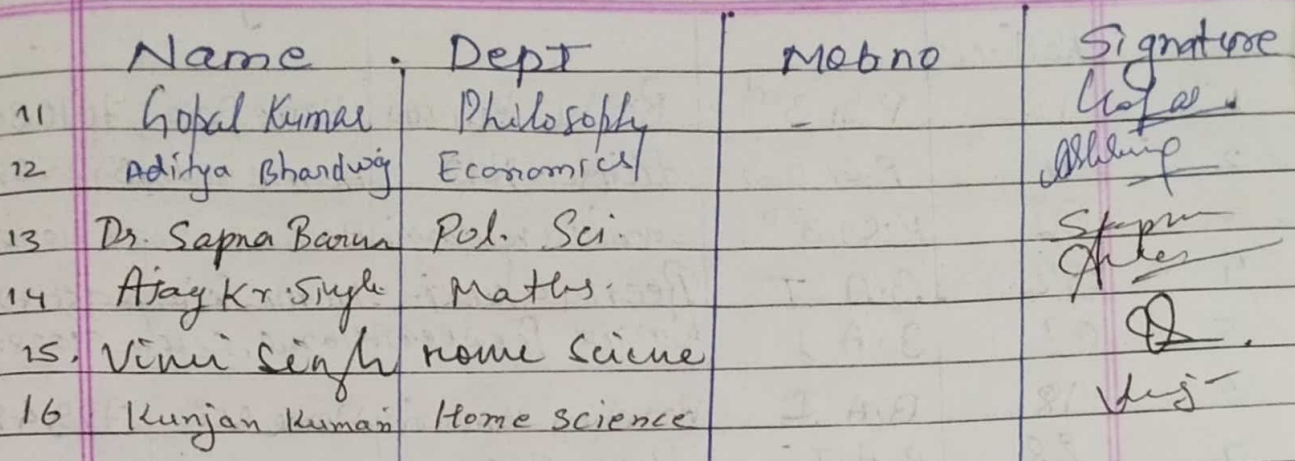 Name . Dept Mobno Signature
11 Gopal Kumar Philosophy
12 Aditya Bhardwaj Economics
13 Dr. Sapna Barun Pol. Sci.
14 Ajay Kr. Singh Maths.
15. Vini Singh Home Sciene
16 Kunjan Kumari Home science